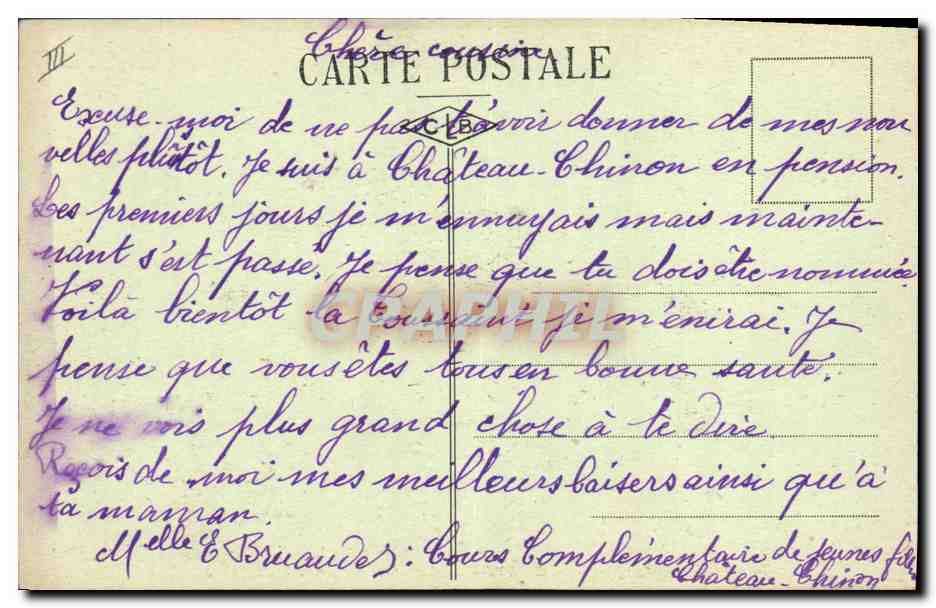 III
Chère cousine
CARTE POSTALE
Excuse-moi de ne pas t'avoir donner de mes nou
C L B
velles plutôt. Je suis à Château-Chinon en pension.
Les premiers jours je m'ennuyais mais mainte-
nant s'est passé. Je pense que tu dois être nommée.
Voilà bientôt la Toussaint je m'énirai. Je
GRAPHIL
pense que vous êtes tous en bonne santé.
Je ne vois plus grand chose à te dire
Reçois de moi mes meilleurs baisers ainsi qu'à
ta maman.
Melle E Bruandet : Cours Complémentaire de jeunes filles
Château-Chinon